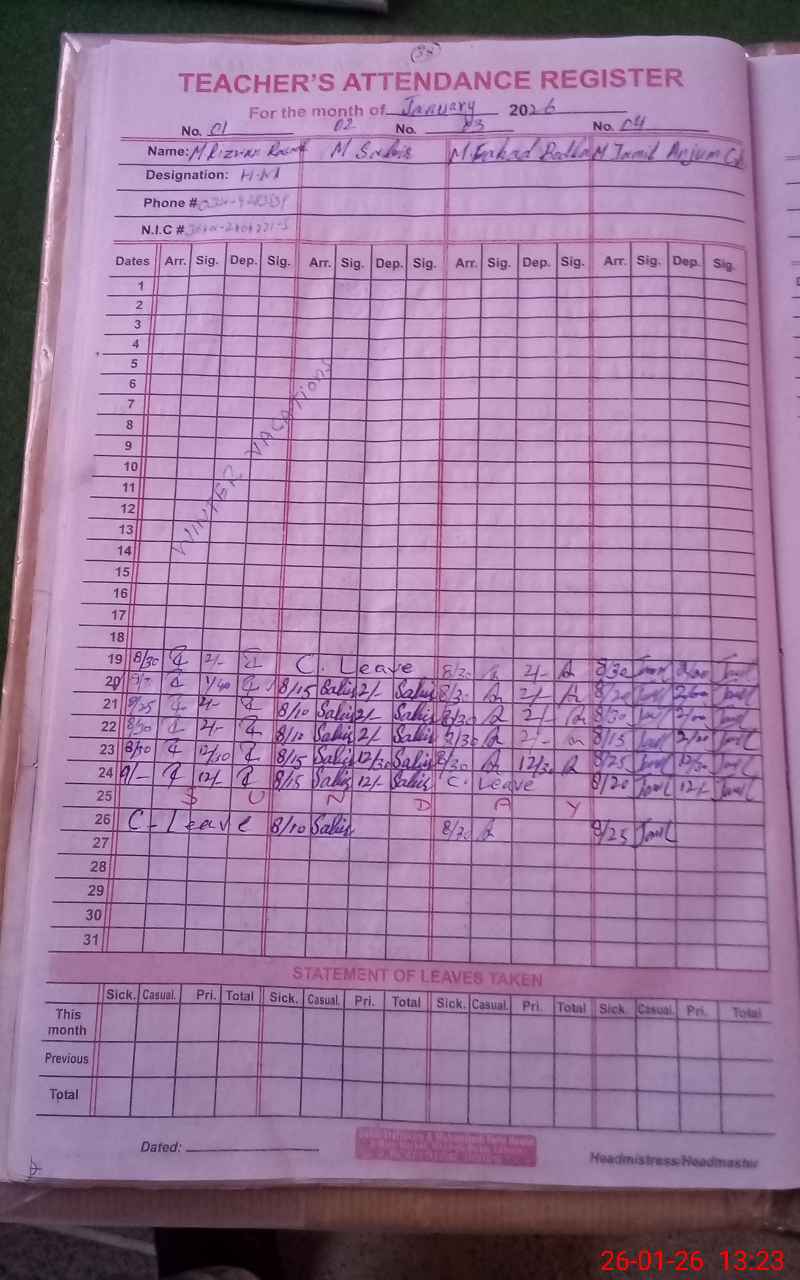 (38)
TEACHER'S ATTENDANCE REGISTER
For the month of January 2026
No. 01 02 No. 03 No. 04
Name: M Rizwan M Sabir M M Jamil Anjum
Designation: H.M
Phone #
N.I.C #
Dates Arr. Sig. Dep. Sig. Arr. Sig. Dep. Sig. Arr. Sig. Dep. Sig. Arr. Sig. Dep. Sig.
1
2
3
4
5
6
7
8
9
10
11
12
13
14
15
16
17
18
WINTER VACATIONS
19 8/30 2/- C. Leave 8/30 2/- 8/30 Jamil 2/00 Jamil
20 1/40 8/15 Sabir 2/- Sabir 8/30 2/- 8/20 Jamil 2/00 Jamil
21 8/25 2/- 8/10 Sabir 2/- Sabir 8/30 2/- 8/30 Jamil 2/00 Jamil
22 8/30 2/- 8/10 Sabir 2/- Sabir 8/30 2/- 8/15 Jamil 2/00 Jamil
23 8/30 12/30 8/15 Sabir 12/30 Sabir 8/30 12/30 8/25 Jamil 12/30 Jamil
24 9/- 12/- 8/15 Sabir 12/- Sabir C. Leave 8/20 Jamil 12/- Jamil
25 S U N D A Y
26 C-Leave 8/10 Sabir 8/30 8/25 Jamil
27
28
29
30
31
STATEMENT OF LEAVES TAKEN
Sick. Casual. Pri. Total Sick. Casual. Pri. Total Sick. Casual. Pri. Total Sick. Casual. Pri. Total
This month
Previous
Total
Dated:
Headmistress/Headmaster
26-01-26 13:23